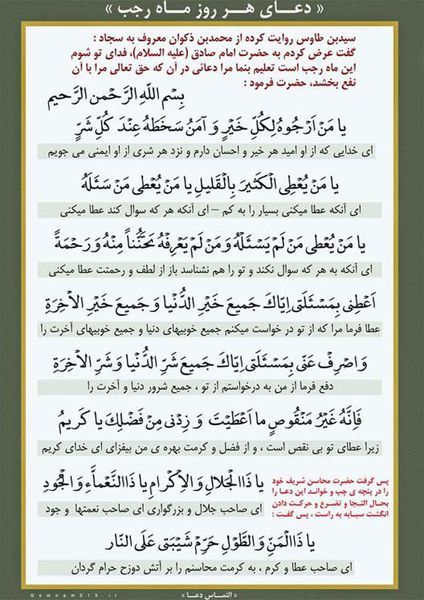 « دعـای هـر روز مـاه رجـب »
سیدبن طاوس روایت کرده از محمدبن ذکوان معروف به سجاد :
گفت عرض کردم به حضرت امام صادق (علیه السلام)، فدای تو شوم
این ماه رجب است تعلیم بنما مرا دعائی در آن که حق تعالی مرا با آن
نفع بخشد، حضرت فرمود :
بِسْمِ اللَّهِ الرَّحْمنِ الرَّحيمِ
يا مَنْ اَرْجُوهُ لِكُلِّ خَيْرٍ وَ آمَنُ سَخَطَهُ عِنْدَ كُلِّ شَرٍّ
ای خدایی که از او امید هر خیر و احسان دارم و نزد هر شری از او ایمنی می جویم
يا مَنْ يُعْطِى الْكَثيرَ بِالْقَليلِ يا مَنْ يُعْطى مَنْ سَئَلَهُ
ای آنکه عطا میکنی بسیار را به کم – ای آنکه هر که سوال کند عطا میکنی
يا مَنْ يُعْطى مَنْ لَمْ يَسْئَلْهُ وَ مَنْ لَمْ يَعْرِفْهُ تَحَنُّناً مِنْهُ وَ رَحْمَةً
ای آنکه به هر که سوال نکند و تو را هم نشناسد باز از لطف و رحمتت عطا میکنی
اَعْطِنى بِمَسْئَلَتى اِيّاكَ جَميعَ خَيْرِ الدُّنْيا وَ جَميعَ خَيْرِ الْاخِرَةِ
عطا فرما مرا که از تو در خواست میکنم جمیع خوبیهای دنیا و جمیع خوبیهای آخرت را
وَ اصْرِفْ عَنّى بِمَسْئَلَتى اِيّاكَ جَميعَ شَرِّ الدُّنْيا وَ شَرِّ الْاخِرَةِ
دفع فرما از من به درخواستم از تو ، جمیع شرور دنیا و آخرت را
فَاِنَّهُ غَيْرُ مَنْقُوصٍ ما اَعْطَيْتَ وَ زِدْنى مِنْ فَضْلِكَ يا كَريمُ
زیرا عطای تو بی نقص است ، و از فضل و کرمت بهره ی من بیفزای ای خدای کریم
پس گرفت حضرت محاسن شریف خود
را در پنجه ی چپ و خوانـد این دعـا را
بحـال التجا و تضـرع و حرکت دادن
انگشت سبابه به راست ، پس گفت :
يا ذَا الْجَلالِ وَ الْاِكْرامِ يا ذَا النَّعْماءِ وَ الْجُودِ
ای صاحب جلال و بزرگواری ای صاحب نعمتها و جود
يا ذَا الْمَنِّ وَ الطَّوْلِ حَرِّمْ شَيْبَتى عَلَى النّارِ
ای صاحب عطا و کرم ، به کرمت محاسنم را بر آتش دوزخ حرام گردان
« التماس دعـا »
Gamnam313.ir